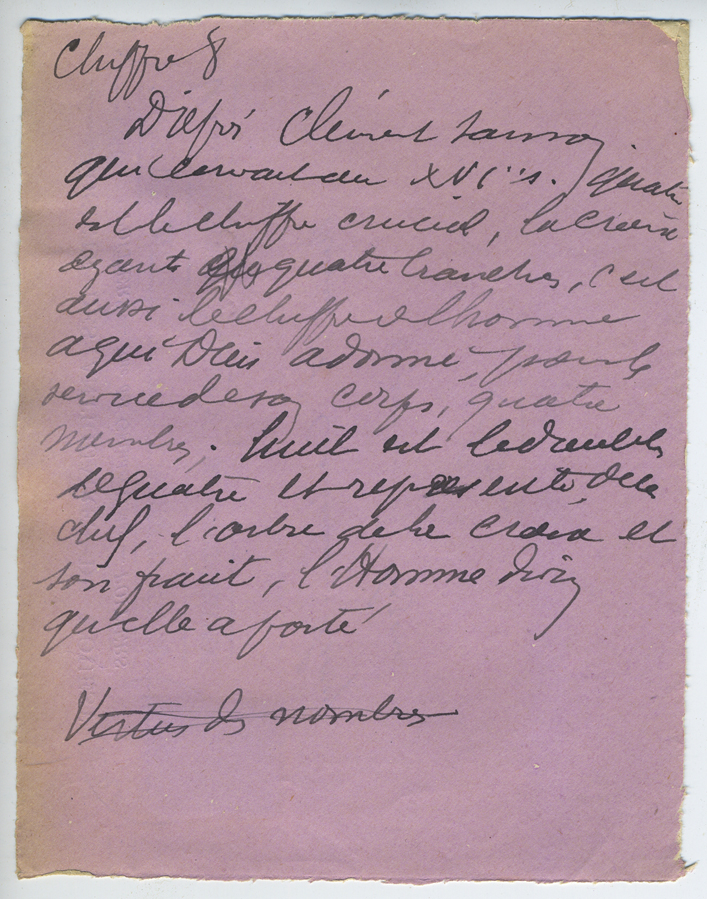 Chiffre 8
D'après Clément Sanson
qui écrivait au XVIe s. quatre
est le chiffre crucial, la croix
ayant quatre branches, c'est
aussi le chiffre de l'homme
à qui Dieu a donné, pour le
service de son corps, quatre
membres. Huit est le double
de quatre et représente,
l'arbre de la croix et
son fruit, l'Homme divin
qu'elle a porté
Vertus des nombres